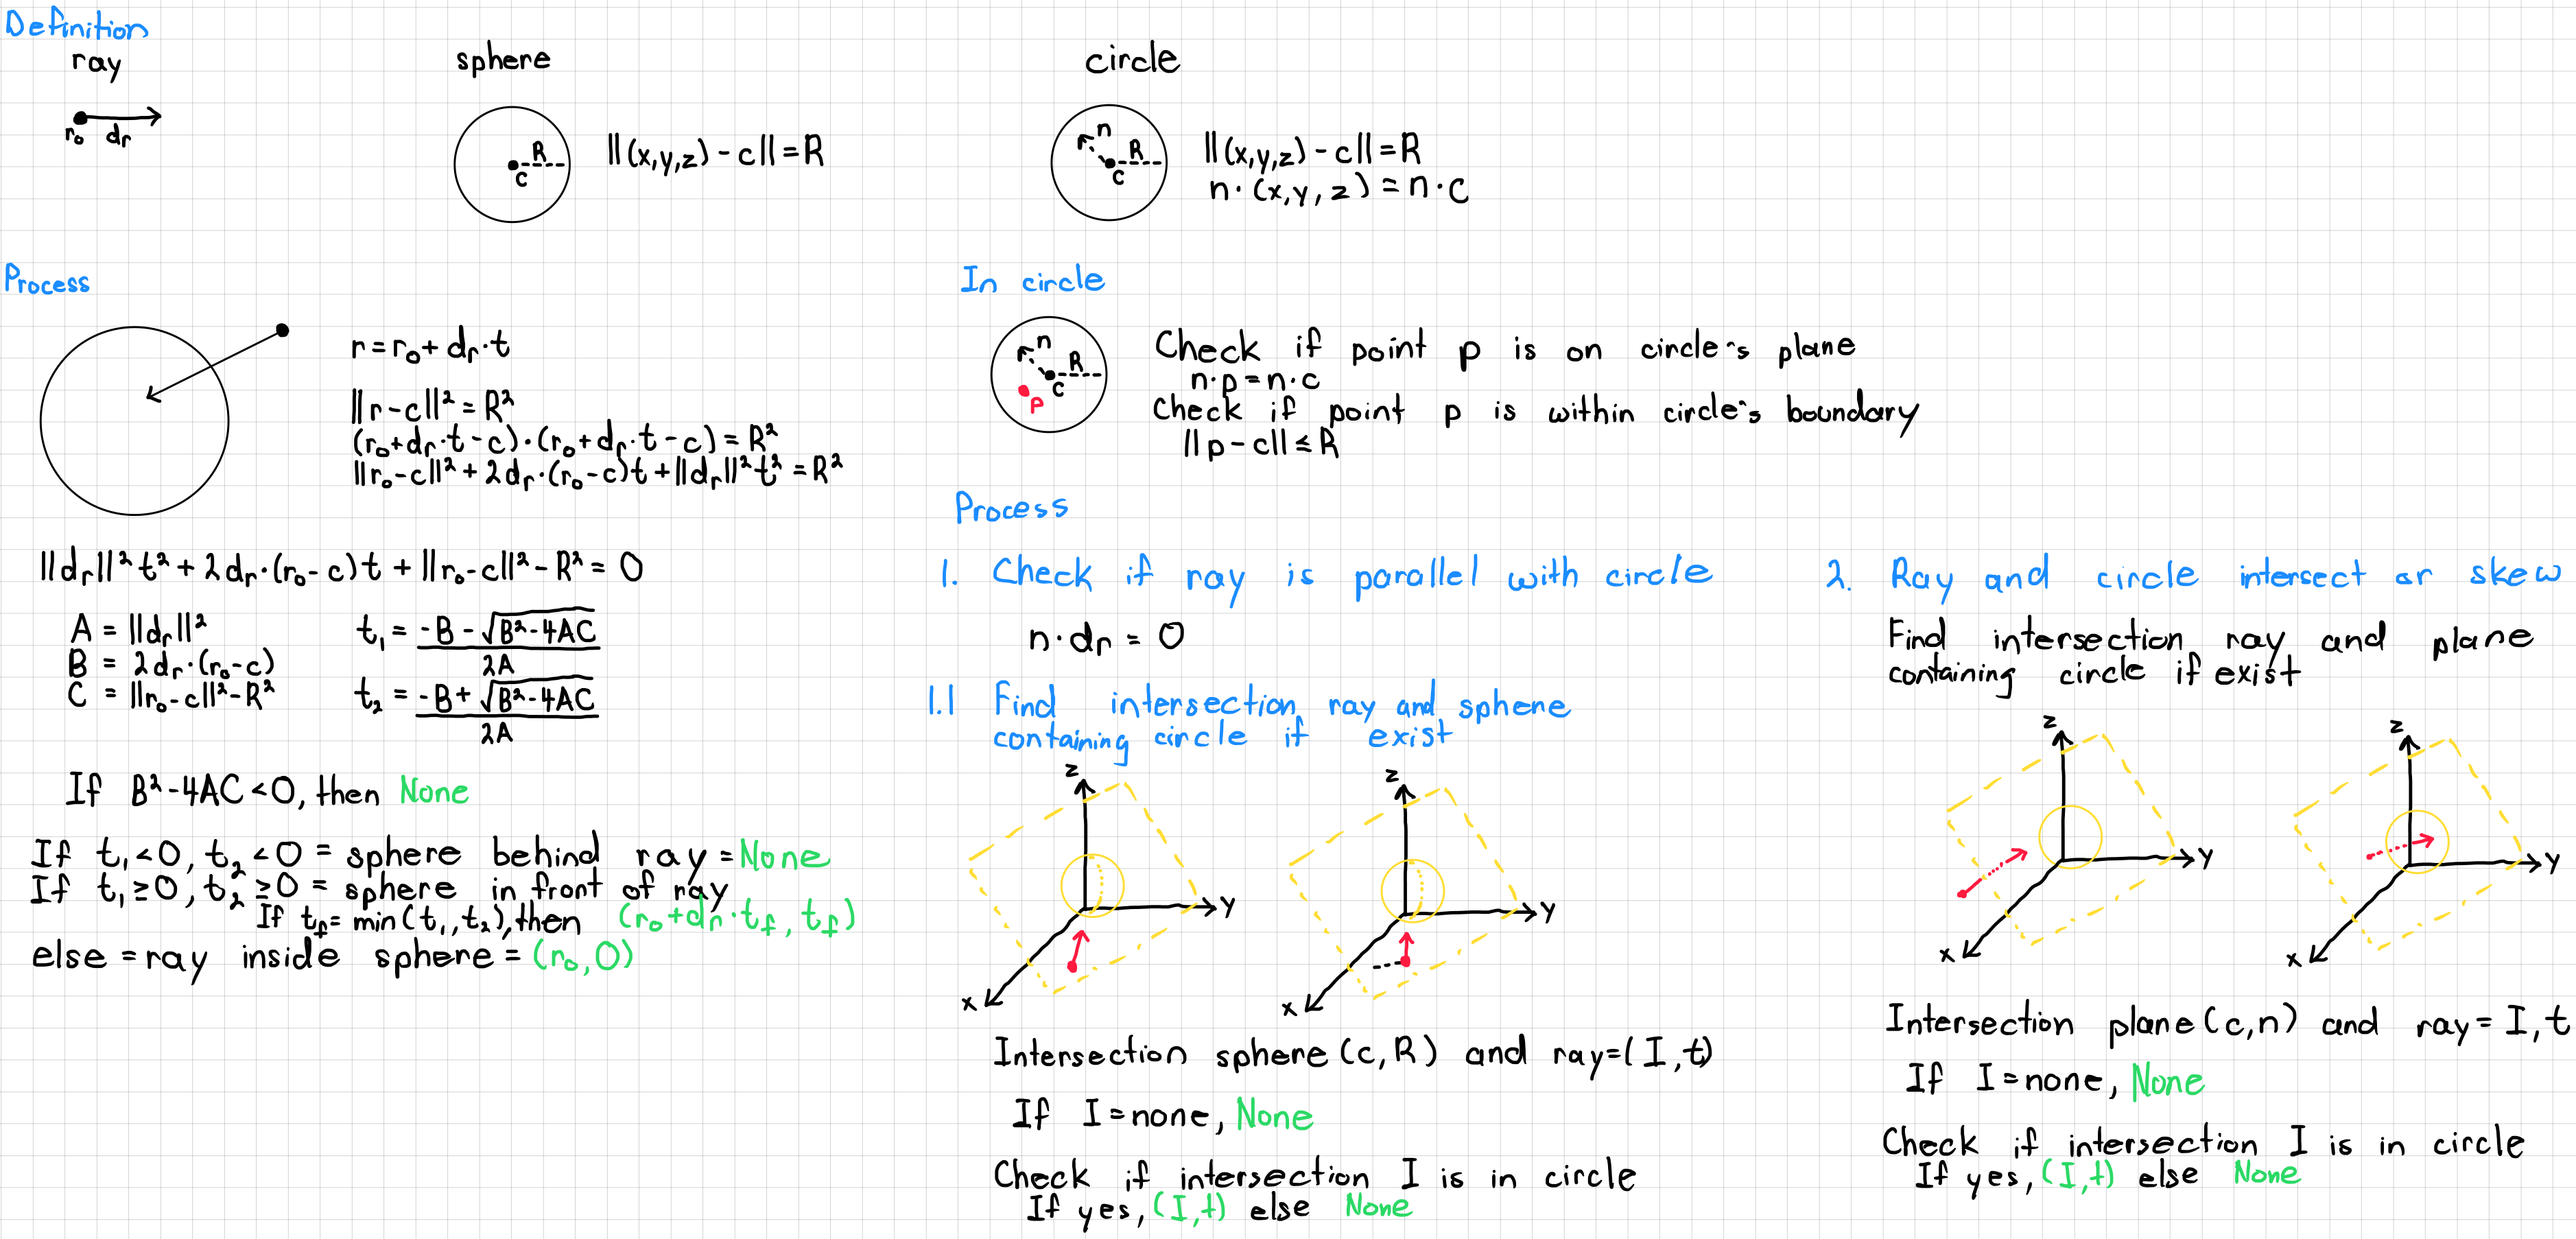 Definition
ray
r₀ dᵣ
sphere
R
c
||(x,y,z) - c|| = R
circle
n
R
c
||(x,y,z) - c|| = R
n·(x,y,z) = n·c
Process
r = r₀ + dᵣ·t
||r-c||² = R²
(r₀+dᵣ·t-c)·(r₀+dᵣ·t-c) = R²
||r₀-c||² + 2dᵣ·(r₀-c)t + ||dᵣ||²t² = R²
||dᵣ||²t² + 2dᵣ·(r₀-c)t + ||r₀-c||² - R² = 0
A = ||dᵣ||²
B = 2dᵣ·(r₀-c)
C = ||r₀-c||²-R²
t₁ = (-B - √(B²-4AC)) / 2A
t₂ = (-B + √(B²-4AC)) / 2A
If B²-4AC < 0, then None
If t₁<0, t₂<0 = sphere behind ray = None
If t₁≥0, t₂≥0 = sphere in front of ray
If t_f = min(t₁,t₂), then (r₀+dᵣ·t_f, t_f)
else = ray inside sphere = (r₀, 0)
In circle
n
R
c
p
Check if point p is on circle's plane
n·p = n·c
Check if point p is within circle's boundary
||p-c|| ≤ R
Process
1. Check if ray is parallel with circle
n·dᵣ = 0
1.1 Find intersection ray and sphere
containing circle if exist
z
y
x
z
y
x
Intersection sphere (c,R) and ray=(I,t)
If I=none, None
Check if intersection I is in circle
If yes, (I,t) else None
2. Ray and circle intersect or skew
Find intersection ray and plane
containing circle if exist
z
y
x
z
y
x
Intersection plane (c,n) and ray = I,t
If I=none, None
Check if intersection I is in circle
If yes, (I,t) else None